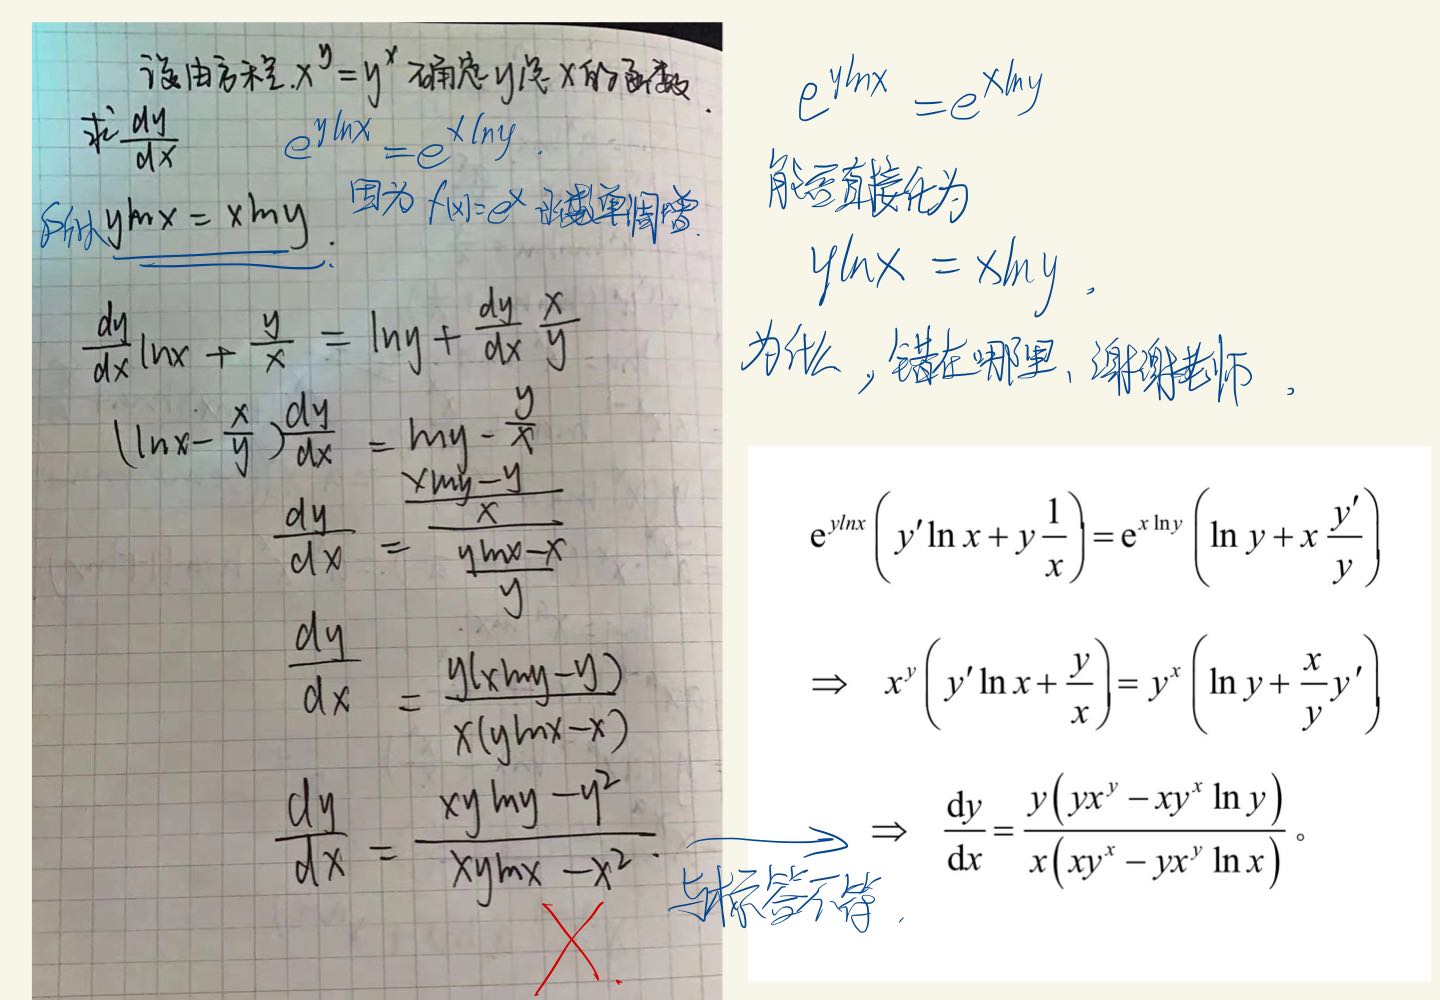 设由方程x^y=y^x确定y是x的函数.
求dy/dx
e^{ylnx}=e^{xlny}.
因为f(x)=e^x函数单调增.
所以ylnx=xlny.
dy/dx lnx + y/x = lny + dy/dx x/y
(lnx - x/y) dy/dx = lny - y/x
dy/dx = ((xlny-y)/x)/((ylnx-x)/y)
dy/dx = y(xlny-y)/x(ylnx-x)
dy/dx = (xylny-y²)/(xylnx-x²).
与标答不等.
e^{ylnx}=e^{xlny}
能否直接化为
ylnx=xlny,
为什么,错在哪里、谢谢老师.
e^{ylnx}(y′ln x+y 1/x)=e^{x ln y}(ln y+x y′/y)
⇒ x^y(y′ln x+y/x)=y^x(ln y+x/y y′)
⇒ dy/dx=y(yx^y−xy^x ln y)/x(xy^x−yx^y ln x)。